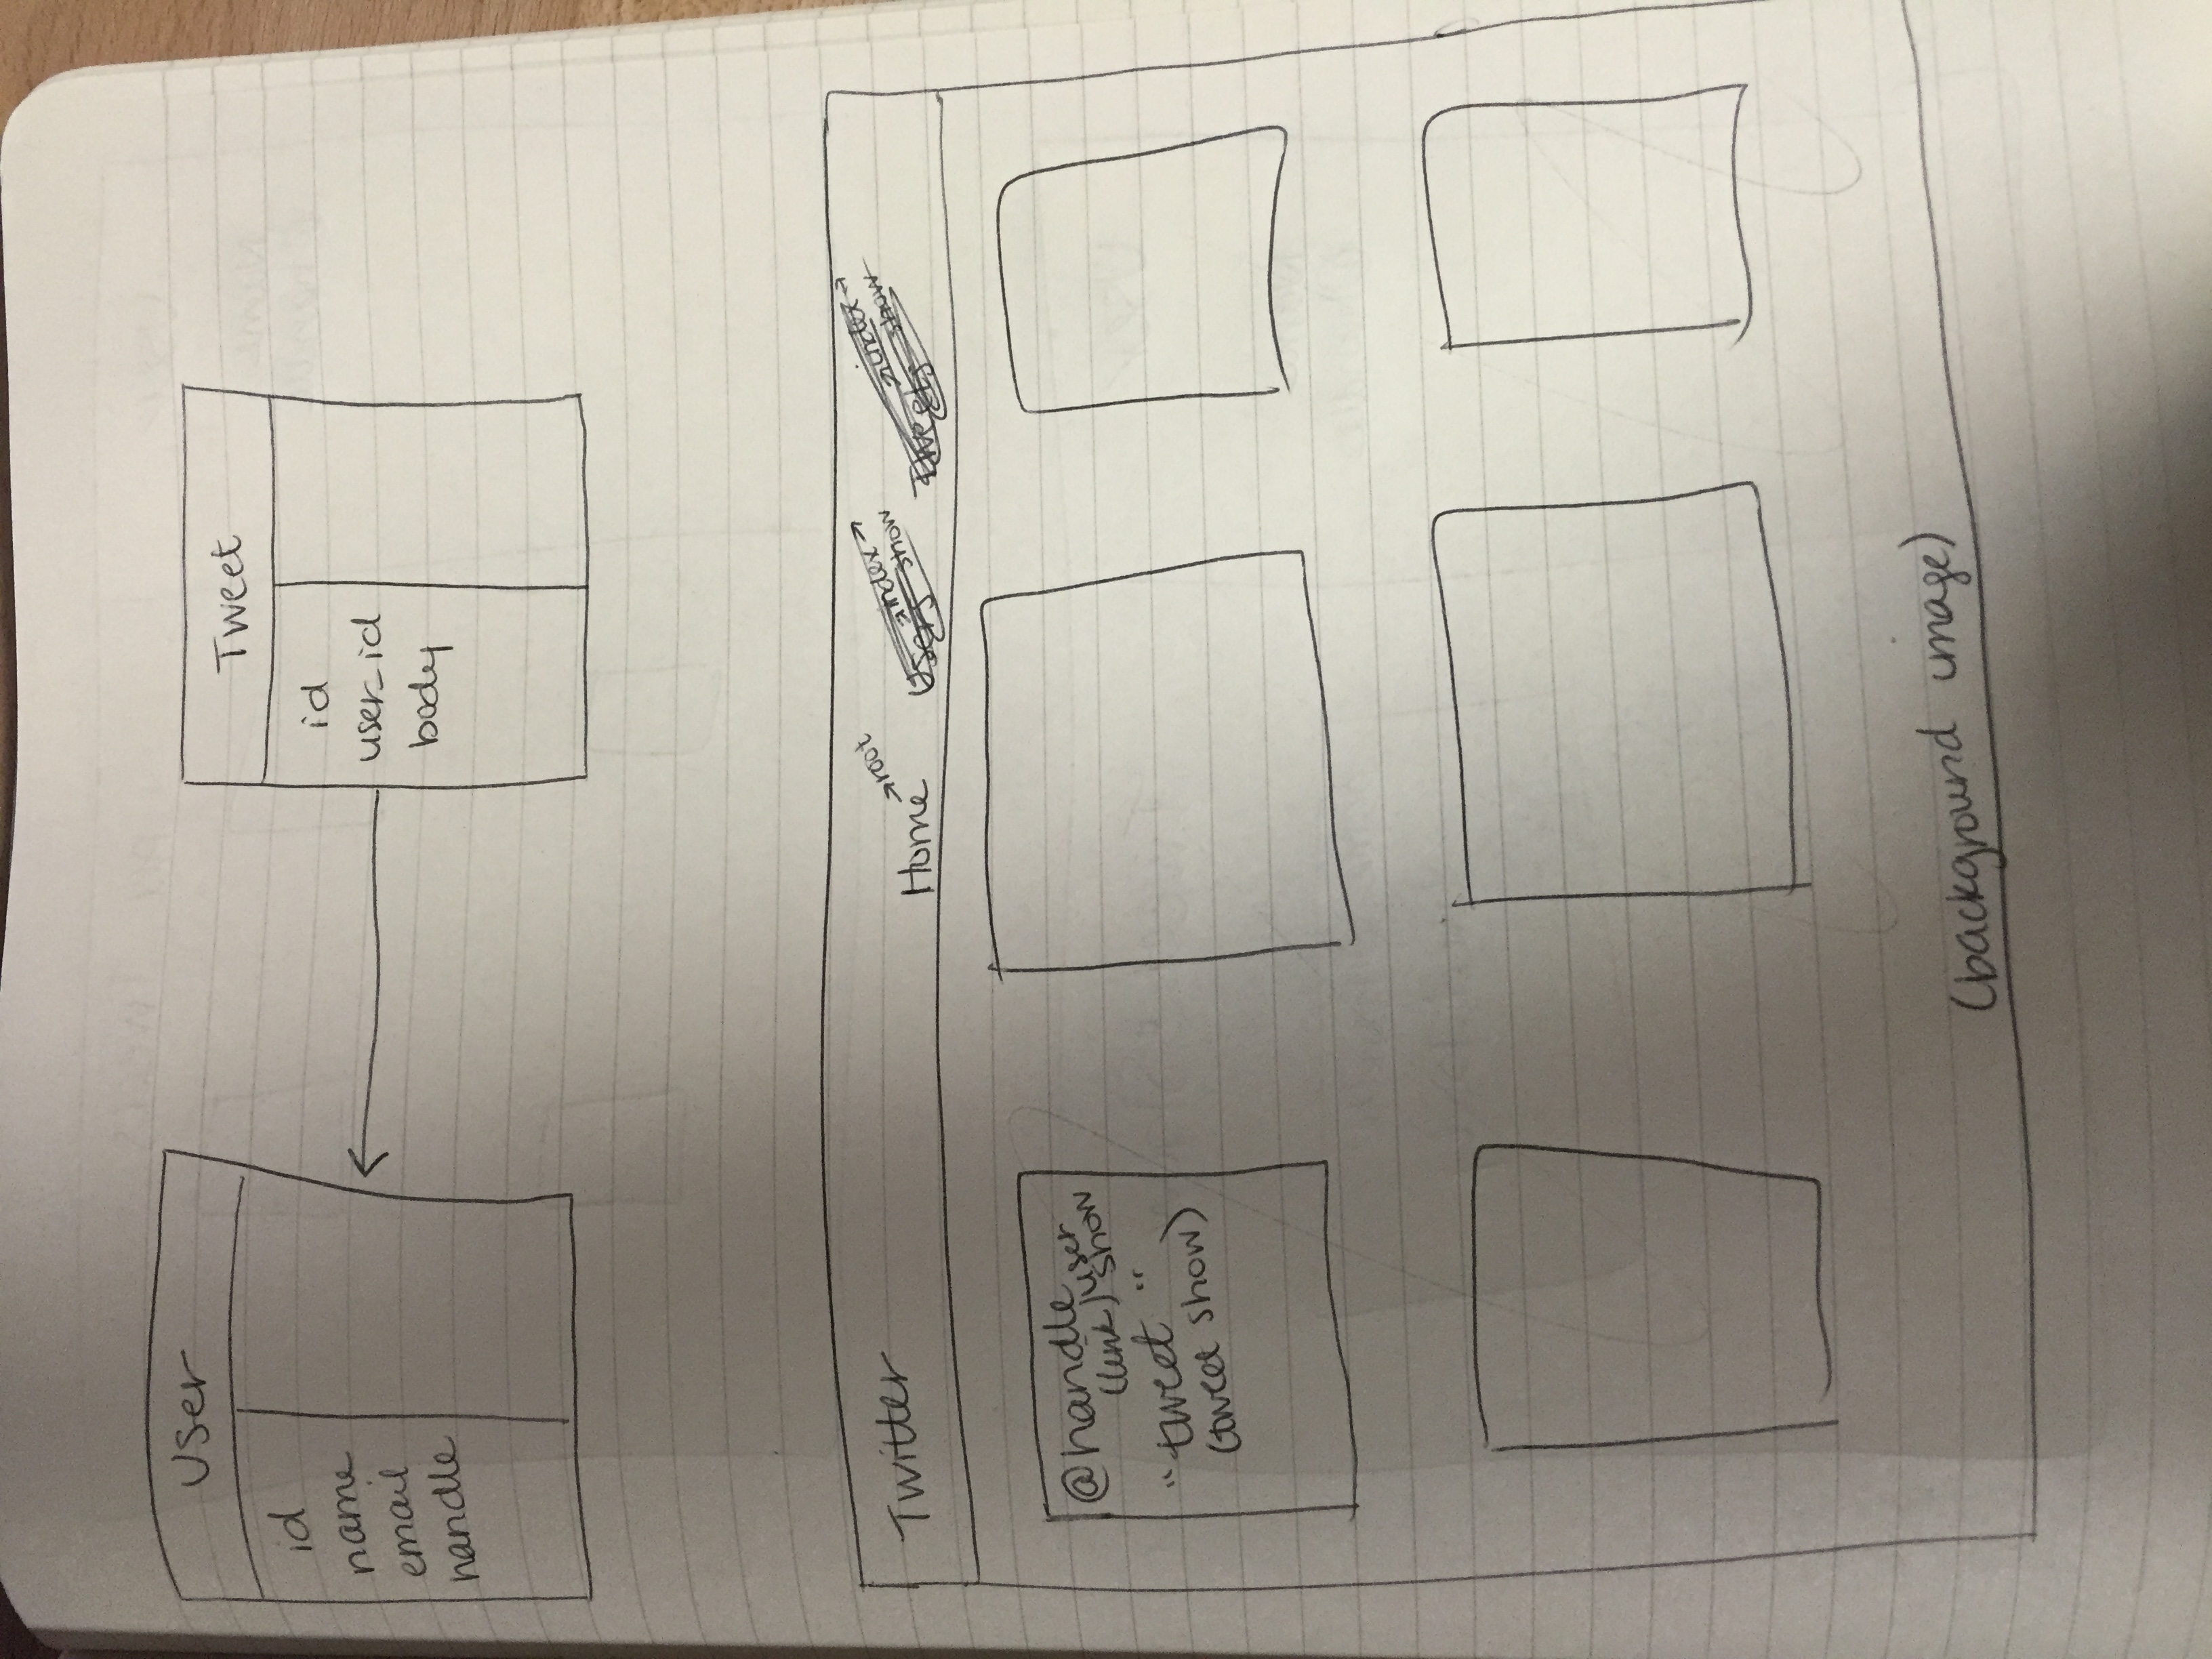 User
id
name
email
handle
Tweet
id
user_id
body
Twitter
Home →root
Users →index→
show
Tweets →index→
show
@handle
(link) user
show
"tweet"
(tweet show)
(background image)